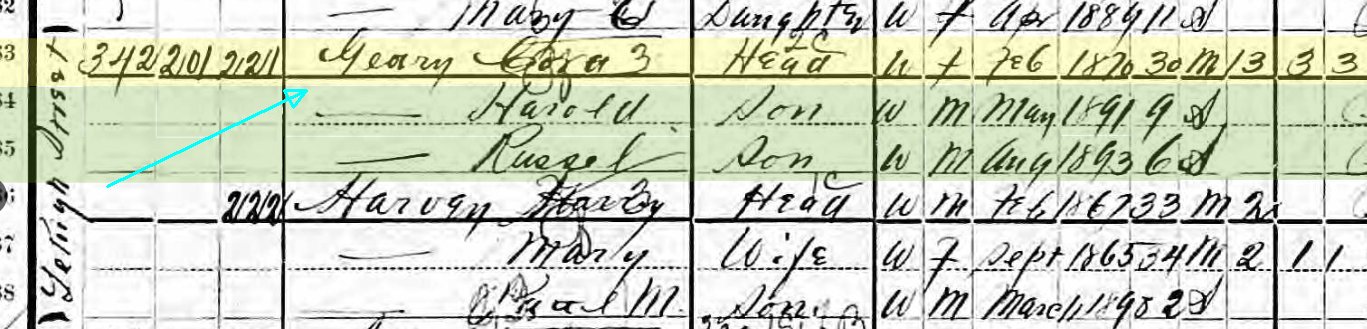 Mary Daughter W F Apr 1889 11 S
63 342 201 221 Geary 3 Head W F Feb 1870 30 M 13 3 3
64 — Harold Son W M May 1891 9 S
65 — Russel Son W M Aug 1893 6 S
222 Harvey Head W M Feb 1867 33 M 2
67 — Mary Wife W F Sept 1865 34 M 2 1 1
68 — M. Son W M March 1898 2 S